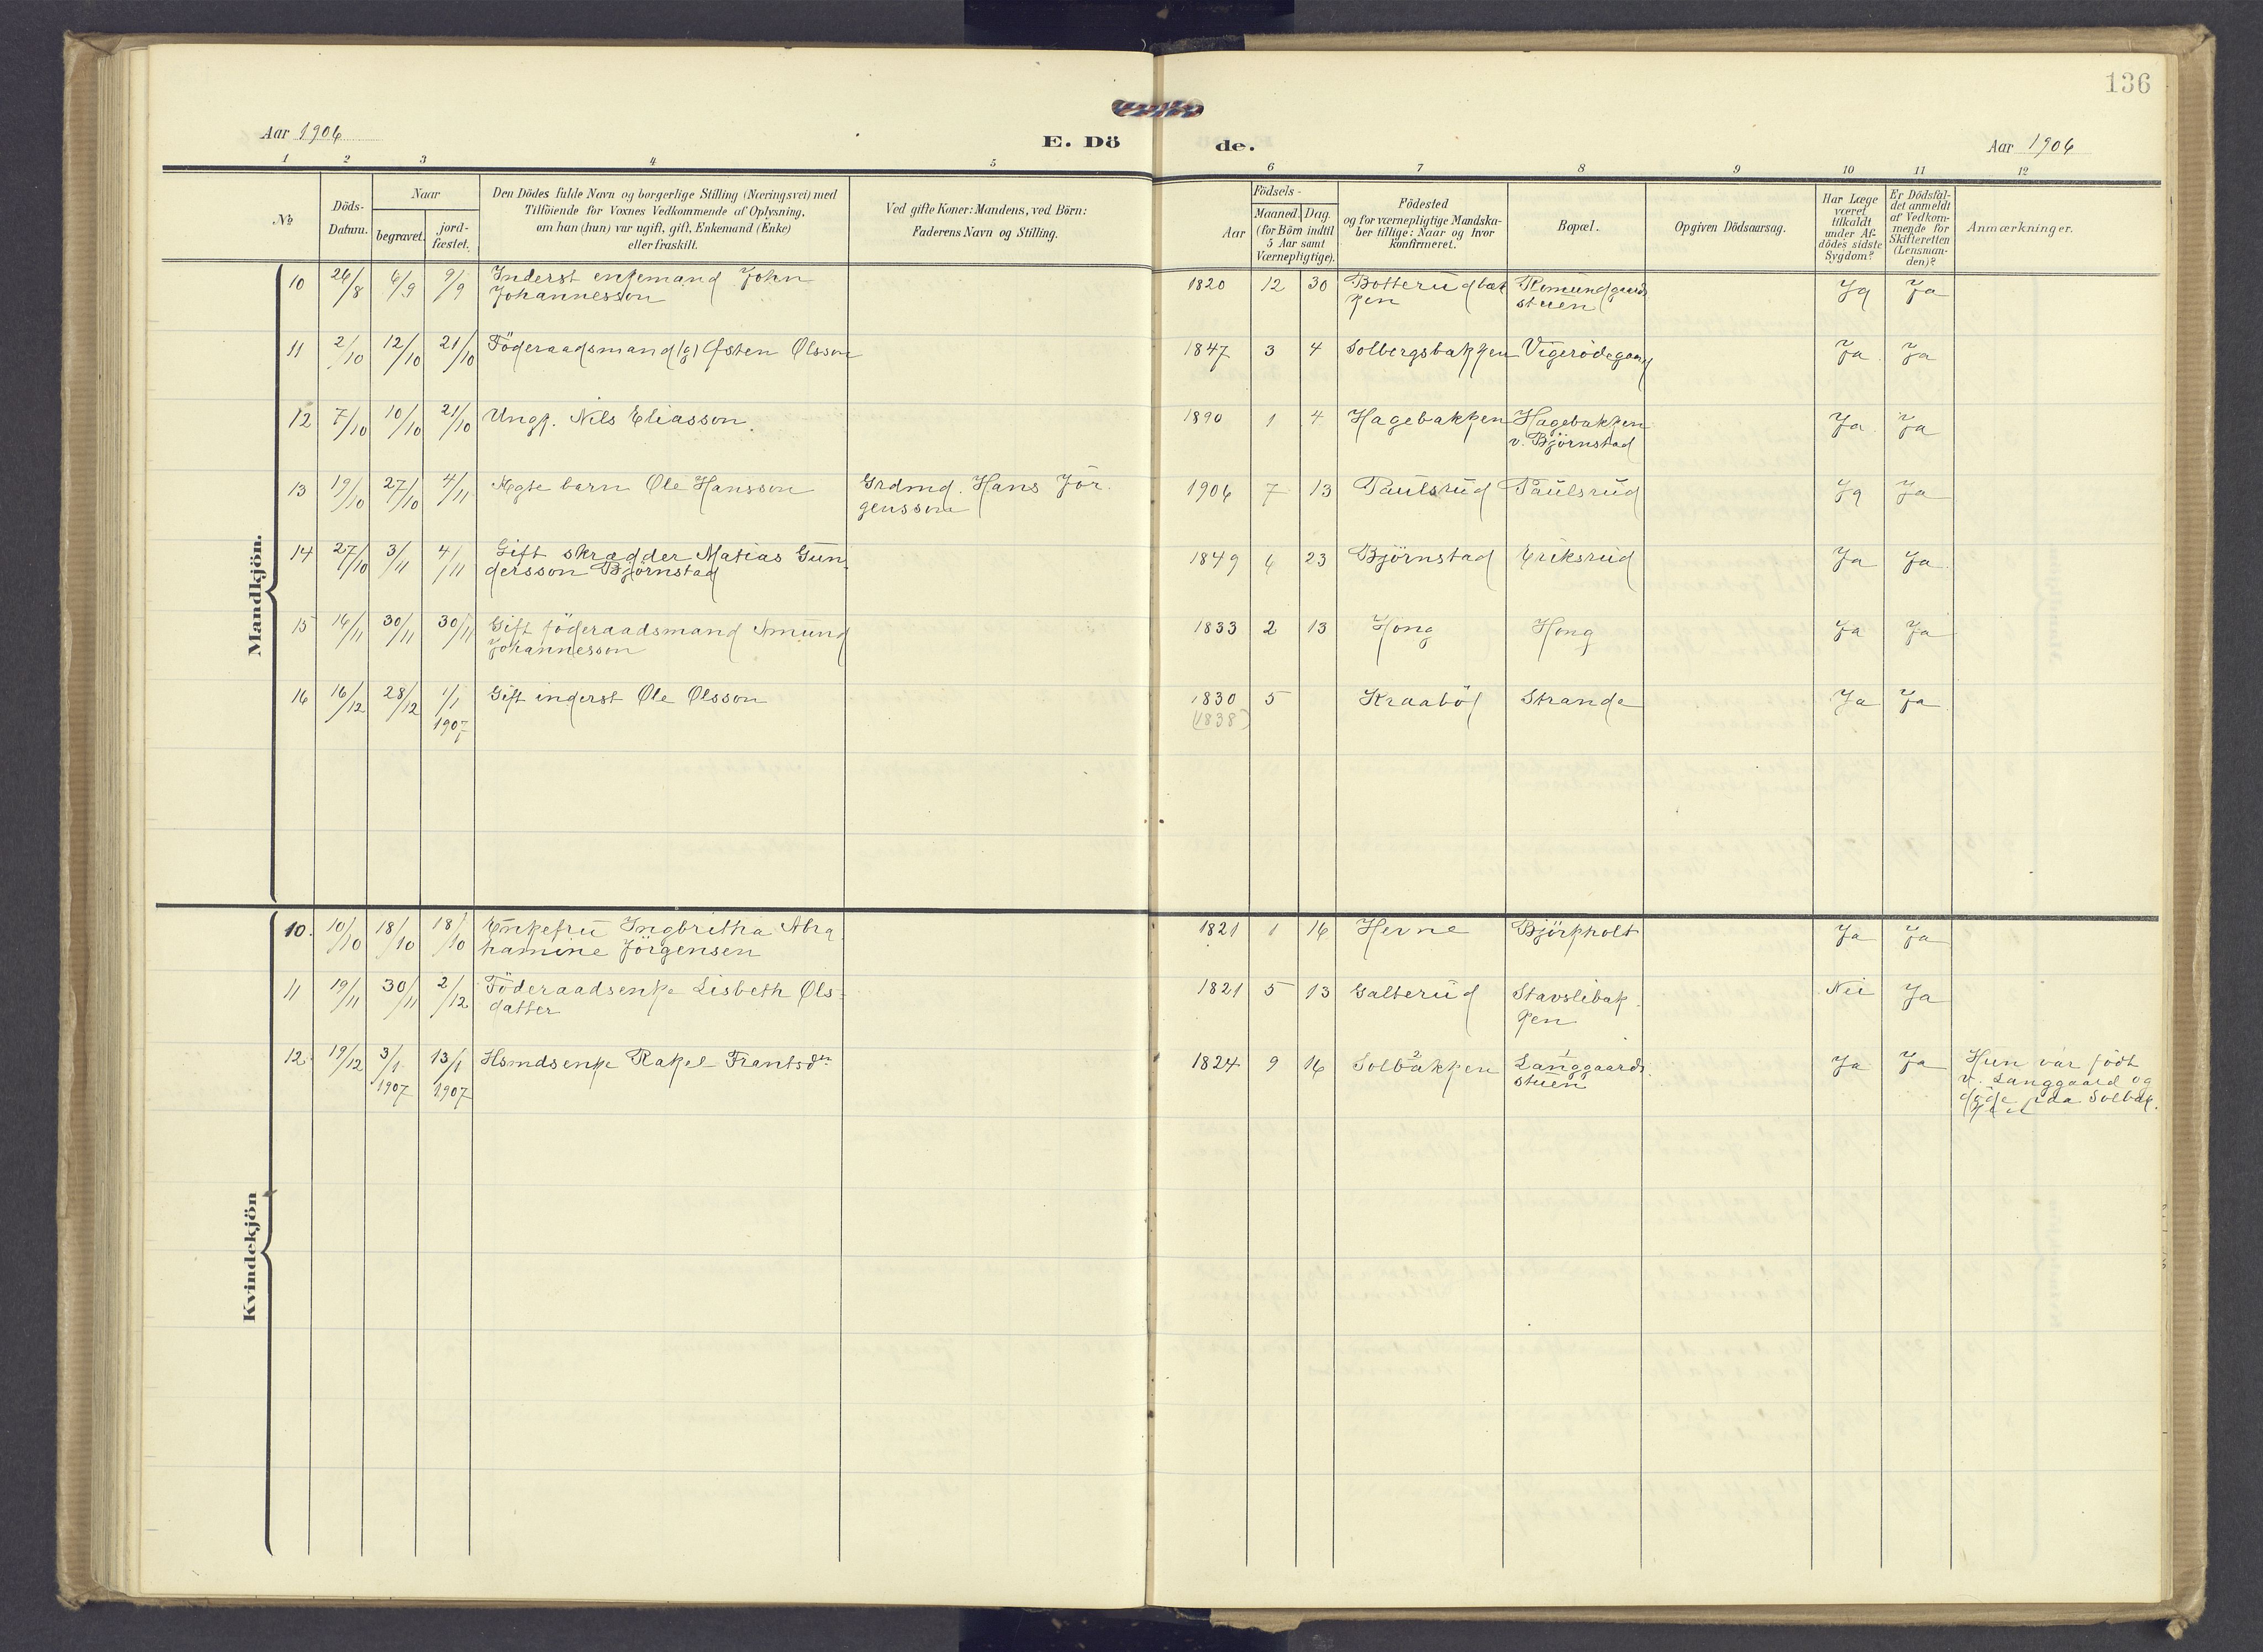 136
Aar 1906
E. Dö
de.
Aar 1906
1 2 3 4 5 6 7 8 9 10 11 12
No
Döds-
Datum.
Naar
begravet.
jord-
fæstet.
Den Dödes fulde Navn og borgerlige Stilling (Næringsvei) med
Tilföiende for Voxnes Vedkommende af Oplysning,
om han (hun) var ugift, gift, Enkemand (Enke)
eller fraskilt.
Ved gifte Koner: Mandens, ved Börn:
Faderens Navn og Stilling.
Födsels-
Aar
Maaned. Dag.
(for Börn indtil
5 Aar samt
Værnepligtige).
Födested
og for værnepligtige Mandska-
ber tillige: Naar og hvor
konfirmeret.
Bopæl.
Opgiven Dödsaarsag.
Har Læge
været
tilkaldt
under Af-
dödes sidste
Sygdom?
Er Dödsfal-
det anmeldt
af Vedkom-
mende for
Skifteretten
(Lensman-
den)?
Anmærkninger.
Mandkjön.
10 26/8 6/9 9/9 Inderst enkemand John
Johannesson
1820 12 30 Botterudbak
ken
Romundgaards
stuen
Ja Ja
11 2/10 12/10 21/10 Föderaadsmand (g) Østen Olsson
1847 3 4 Solbergsbakken Vigerödegaard Ja Ja
12 7/10 10/10 21/10 Ungk. Nils Eliasson.
1890 1 4 Hagebakken Hagebakken
v. Björnstad
Ja Ja
13 19/10 27/10 4/11 Ægte barn Ole Hansson Grdmd. Hans Jör
gensson
1906 7 13 Paulsrud Paulsrud Ja Ja
14 27/10 3/11 4/11 Gift skrædder Matias Gun
dersson Björnstad
1849 6 23 Björnstad Eriksrud Ja Ja
15 16/11 30/11 30/11 Gift föderaadsmand Amund
Johannesson
1833 2 13 Hong Hong Ja Ja
16 16/12 28/12 1/1
1907
Gift inderst Ole Olsson
1830 5 Kraaböl Strande Ja Ja
(1838)
Kvindekjön
10. 10/10 18/10 18/10 Enkefru Ingbritha Abra
hamine Jörgensen
1821 1 16 Hevne Björkholt Ja Ja
11 19/11 30/11 2/12 Föderaadsenke Lisbeth Ols-
datter
1821 5 13 Galterud Stavslibak
ken
Nei Ja
12 19/12 3/1
1907
13/1
1907
Hsmdsenke Rakel Frantsdtr
1824 9 16 Solbakken 2 Langgaards 1
stuen
Ja Ja Hun var födt
v. Langgaard og
döde paa Solbak